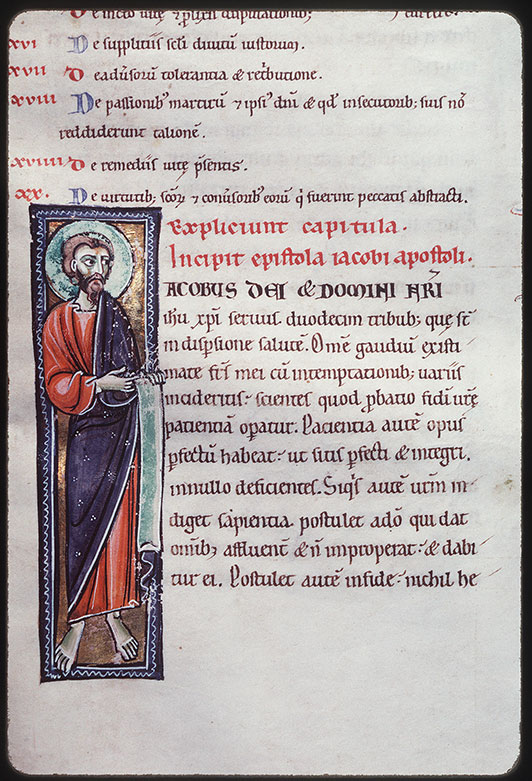 De initio vitę &
xvi De suppliciis scł̄i divitū iustorum.
xvii De eadūsorū tolerantia & ret͛butione.
xviii De passionib; martirū ⁊ ipsi᾽ dn̄i & qd̄ insecutorib; suis nō
reddiderunt talionē.
xviiii De remediis vitę p̄sentis.
xx. De virtutib; scōꝝ ⁊ conūsorib᾽ eorū q̇ fuerunt peccatis abstracti.
Expliciunt capitula.
Incipit epistola iacobi apostoli.
IACOBUS DEI & DOMINI NR̄I
ihu xp̄i servus. duodecim tribub; quę st̄
in disp̄sione salutē. Om̄e gaudiū existi
mate fr̄s mei cū intemptationib; variis
incideritis. scientes quod p̱batio fidei vr̄ę
patientiā operatur. Patientia autē opus
ꝑfectū habeat. ut sitis ꝑfecti & integri.
in nullo deficientes. Siq̇s autē vr̄m in
diget sapientia. postulet a dō qui dat
omib; affluent̄ & n̄ improperat. & dabi
tur ei. Postulet autē in fide. nichil he